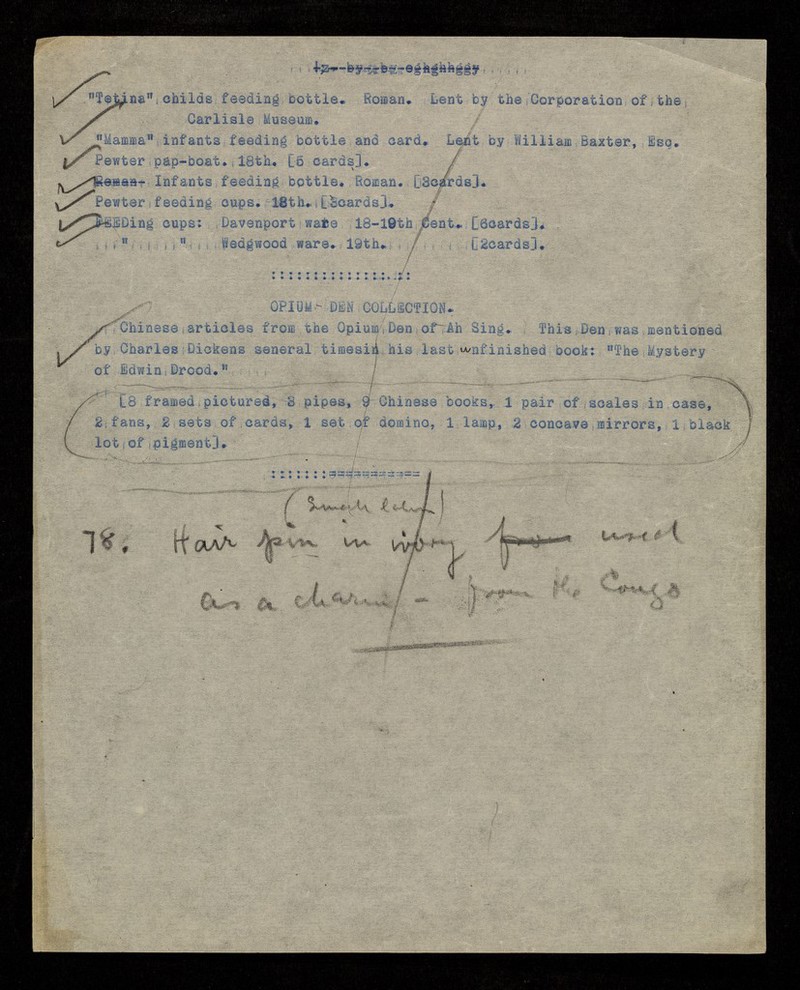 "Tetina" childs feeding bottle. Roman. Lent by the Corporation of the
Carlisle Museum.
"Mamma" infants feeding bottle and card. Lent by William Baxter, Esq.
Pewter pap-boat. 18th. [5 cards].
Roman. Infants feeding bottle. Roman. [3cards].
Pewter feeding cups. 18th. [3cards].
FEEDing cups: Davenport ware 18-19th Cent. [6cards].
" " Wedgwood ware. 19th. [2cards].
::::::::::::::::
OPIUM - DEN COLLECTION.
Chinese articles from the Opium Den of Ah Sing. This Den was mentioned
by Charles Dickens several timesin his last unfinished book: "The Mystery
of Edwin Drood."
[8 framed pictured, 3 pipes, 9 Chinese books, 1 pair of scales in case,
2 fans, 2 sets of cards, 1 set of domino, 1 lamp, 2 concave mirrors, 1 black
lot of pigment].
:::::::==========
(Small label)
78. Hair pin in ivory from used
as a charm - from the Congo